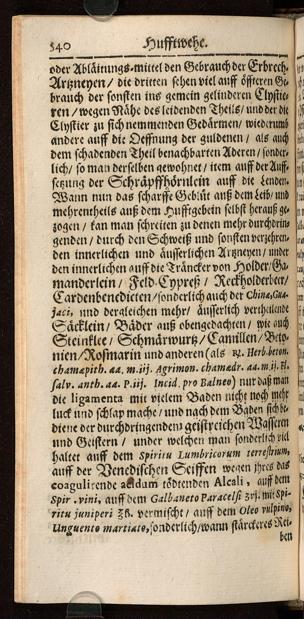 540 Hufftwehe.
oder Abläitungs-mittel den Gebrauch der Erbrech-
Artzneyen / die dritten sehen viel auff öffteren Ge-
brauch der sonsten ins gemein gelinderen Clystie-
ren / wegen Nähe des leidenden Theils / und der die
Clystier zu sich nemmenden Gedärmen / wiederumb
andere auff die Oeffnung der guldenen / als auch
dem schadenden Theil benachbarten Aderen / sonder-
lich / so man derselben gewohnet / item auff der Auff-
setzung der Schräpffhörnlein auff die Lenden.
Wann nun das scharffe Geblüt auß dem Leib / und
mehrentheils auß dem Hufftgebein selbst herauß ge-
zogen / kan man schreiten zu denen mehr durchdrin-
genden / durch den Schweiß und sonsten verzehren-
den innerlichen und äusserlichen Artzneyen / under
den innerlichen auff die Träncker von Holder / Ga-
manderlein / Feld-Cypreß / Reckholderbeer /
Cardenbenedicten / sonderlich auch der China, Gua-
jaci, und dergleichen mehr / äusserlich vertheilende
Säcklein / Bäder auß obengedachten / wie auch
Steinklee / Schmärwurtz / Camillen / Beto-
nien / Rosmarin und anderen (als ℞. Herb. beton.
chamapith. aa. m. iij. Agrimon. chamadr. aa. m. ij. Fl.
salv. anth. aa. P. iij. Incid. pro Balneo) nur daß man
die ligamenta mit vielem Baden nicht noch mehr
luck und schlap mache / und nach dem Baden sich be-
diene der durchdringenden geistreichen Wasseren
und Geistern / under welchen man sonderlich viel
haltet auff dem Spiritu Lumbricorum terrestrium,
auff der Venedischen Seiffen wegen ihres das
coagulirende acidam tödtenden Alcali, auff dem
Spir. vini, auff dem Galbaneto Paracelsi mit Spi-
ritu juniperi vermischt / auff dem Oleo vulpino,
Unguento martiato, sonderlich / wann stärckeres Rei-
ben